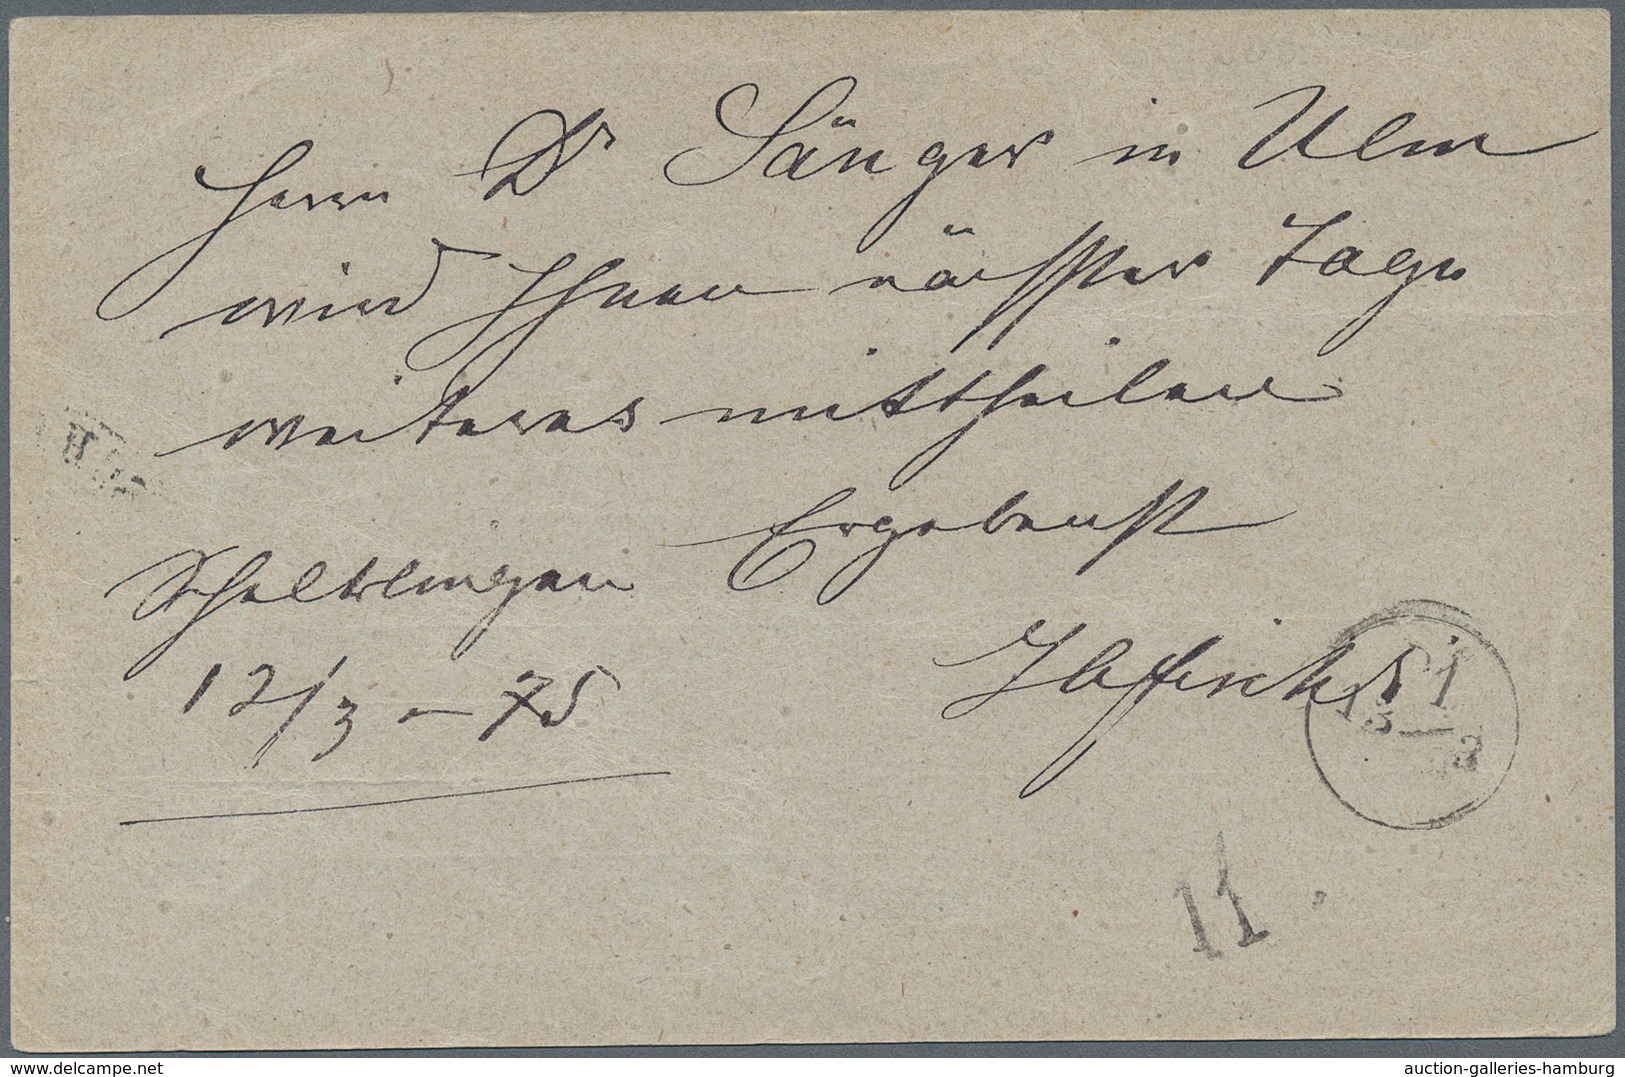 Herrn Dr Sänger in Ulm
wird Ihnen nächster Tage
weiteres mittheilen
Ergebenst
Schelklingen
12/3 – 75
13
3
11
delcampe.net
auction-galleries-hamburg